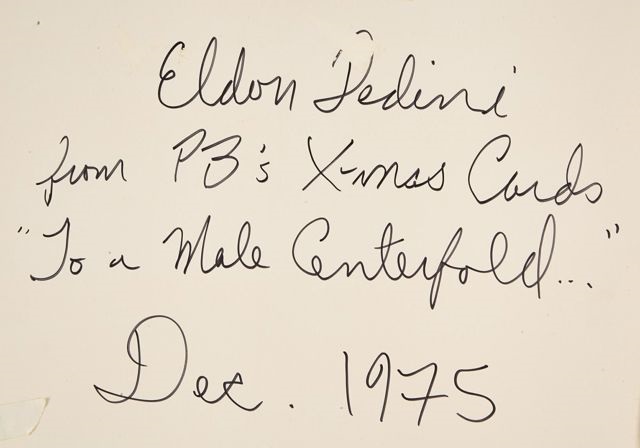 Eldon Dedini
from PB's X-mas Cards
"To a Male Centerfold..."
Dec. 1975